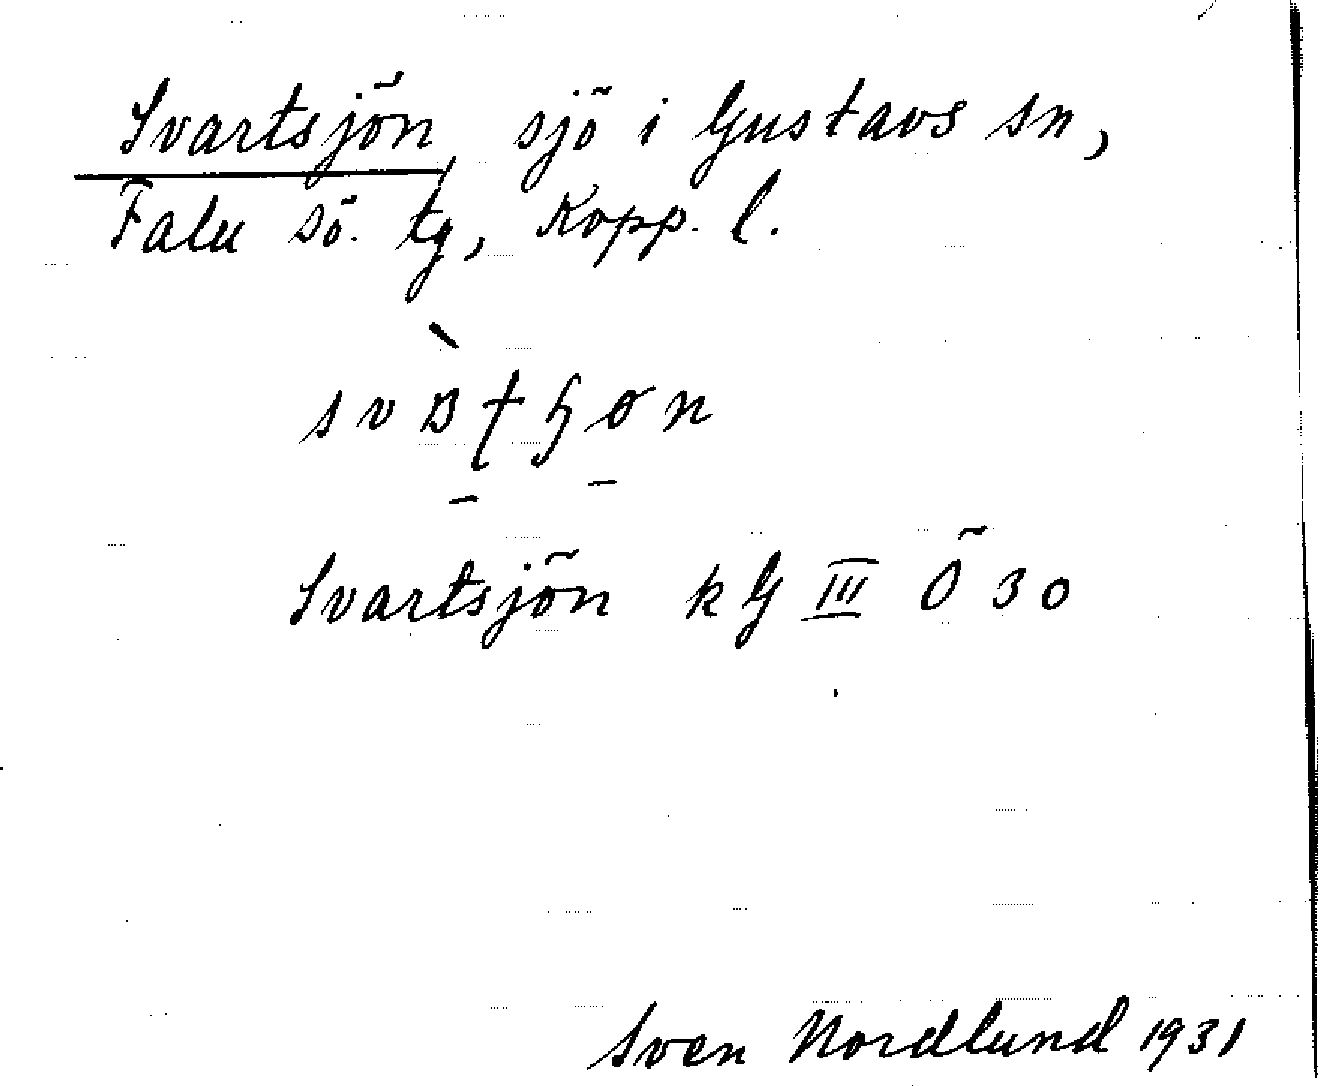 Svartsjön, sjö i Gustavs sn,
Falu sö. tg, Kopp. l.
Svartsjön kG III Ö 30
Sven Nordlund 1931